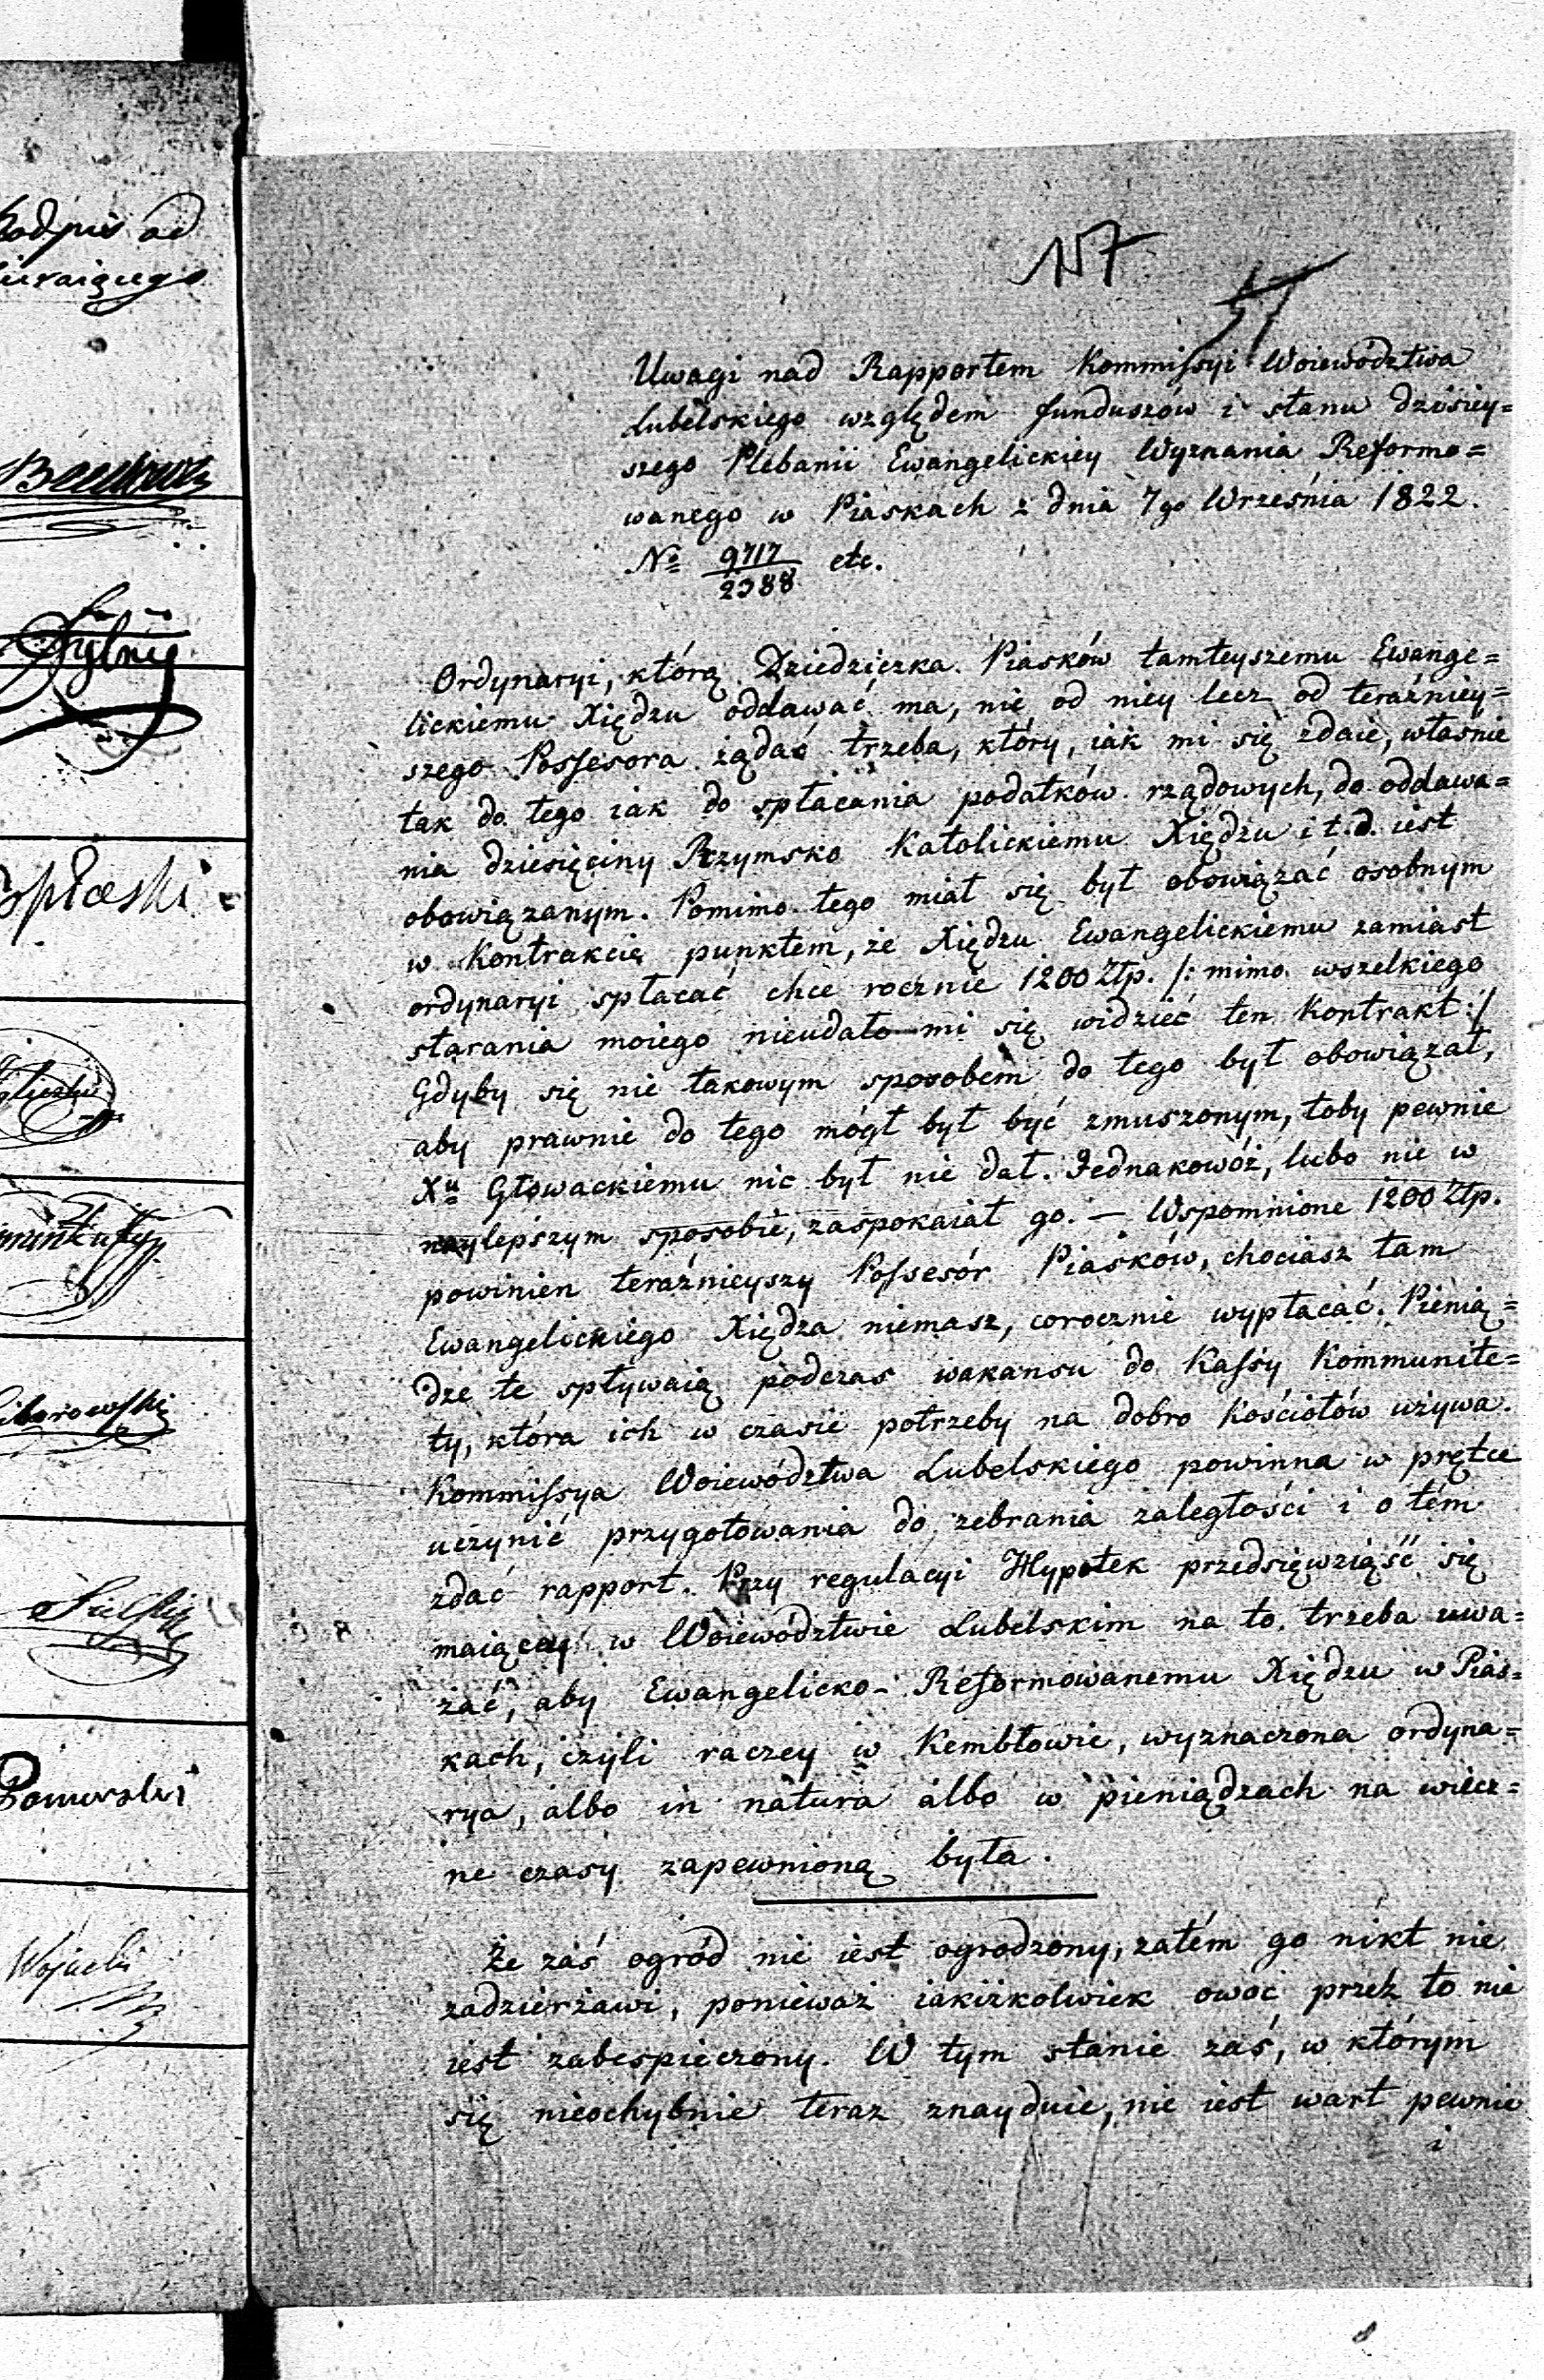 Podpis od
bieraiącego
157
57
Uwagi nad Rapportem Kommissyi Woiewództwa
Lubelskiego względem funduszów i stanu dzisiey=
szego Plebanii Ewangelickiey Wyznania Reformo=
wanego w Piaskach z dnia 7go Września 1822.
No 9717/2388 etc.
Ordynaryi, którą Dziedziczka Piasków tamteyszemu Ewange=
lickiemu Xiędzu oddawać ma, nie od niey lecz od teraźniey=
szego Possesora żądać trzeba, który, iak mi się zdaie, właśnie
tak do tego iak do spłacania podatków rządowych, do oddawa=
nia dziesięciny Rzymsko Katolickiemu Xiędzu i t.d. iest
obowiązanym. Pomimo tego miał się był obowiązać osobnym
w Kontrakcie punktem, że Xiędzu Ewangelickiemu zamiast
ordynaryi spłacać chce rocznie 1200 Złp. /: mimo wszelkiego
starania moiego nieudało mi się widzieć ten Kontrakt :/
Gdyby się nie takowym sposobem do tego był obowiązał,
aby prawnie do tego mógł był być zmuszonym, toby pewnie
Xu Głowackiemu nic był nie dał. Jednakowóż, lubo nie w
naylepszym sposobie, zaspokaiał go. — Wspomnione 1200 Złp.
powinien teraźnieyszy Possesór Piasków, chociasz tam
Ewangelickiego Xiędza niemasz, corocznie wypłacać. Pienią=
dze te spływaią podczas wakansu do Kassy Kommunite=
ty, która ich w czasie potrzeby na dobro Kościołów używa.
Kommissya Woiewództwa Lubelskiego powinna w prętce
uczynić przygotowania do zebrania zaległości i o tém
zdać rapport. Przy regulacyi Hypotek przedsięwziąść się
maiącey w Woiewództwie Lubelskim na to trzeba uwa=
żać, aby Ewangelicko-Reformowanemu Xiędzu w Pias=
kach, czyli raczey w Kembłowie, wyznaczona ordyna=
rya, albo in natura albo w pieniądzach na wiecz=
ne czasy zapewnioną była.
Że zaś ogród nie iest ogrodzony, zatém go nikt nie
zadzierżawi, ponieważ iakiżkolwiek owoc przez to nie
iest zabespieczony. W tym stanie zaś, w którym
się nieochybnie teraz znayduie, nie iest wart pewnie
i